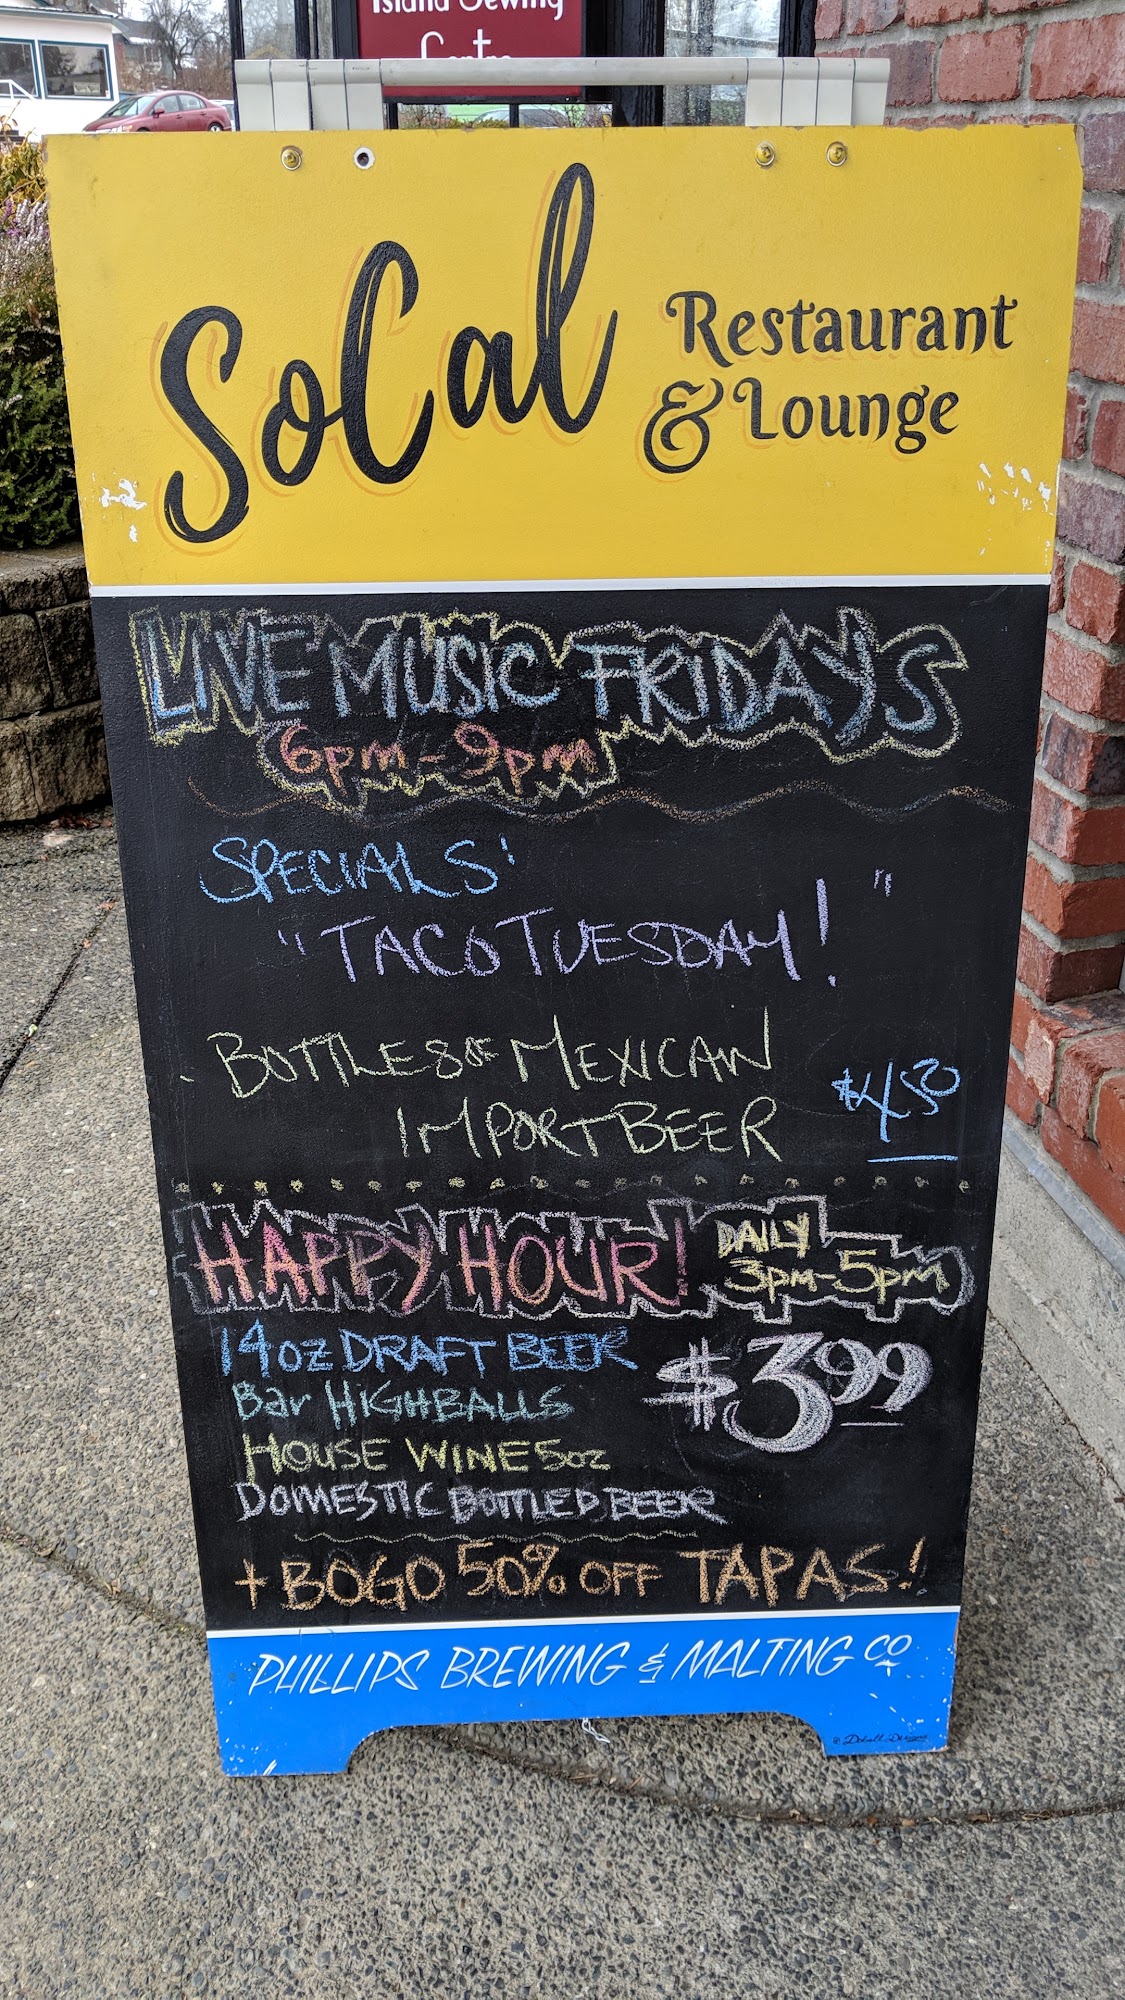 Island Sewing
Centre
SoCal
Restaurant
& Lounge
LIVE MUSIC FRIDAYS
6pm - 9pm
SPECIALS'
"TACO TUESDAY! "
- BOTTLES OF MEXICAN
IMPORT BEER $4.50
HAPPY HOUR! DAILY
3pm-5pm
14oz DRAFT BEER $3.99
Bar HIGHBALLS
HOUSE WINE 5oz
DOMESTIC BOTTLED BEER
+ BOGO 50% OFF TAPAS!
PHILLIPS BREWING & MALTING CO